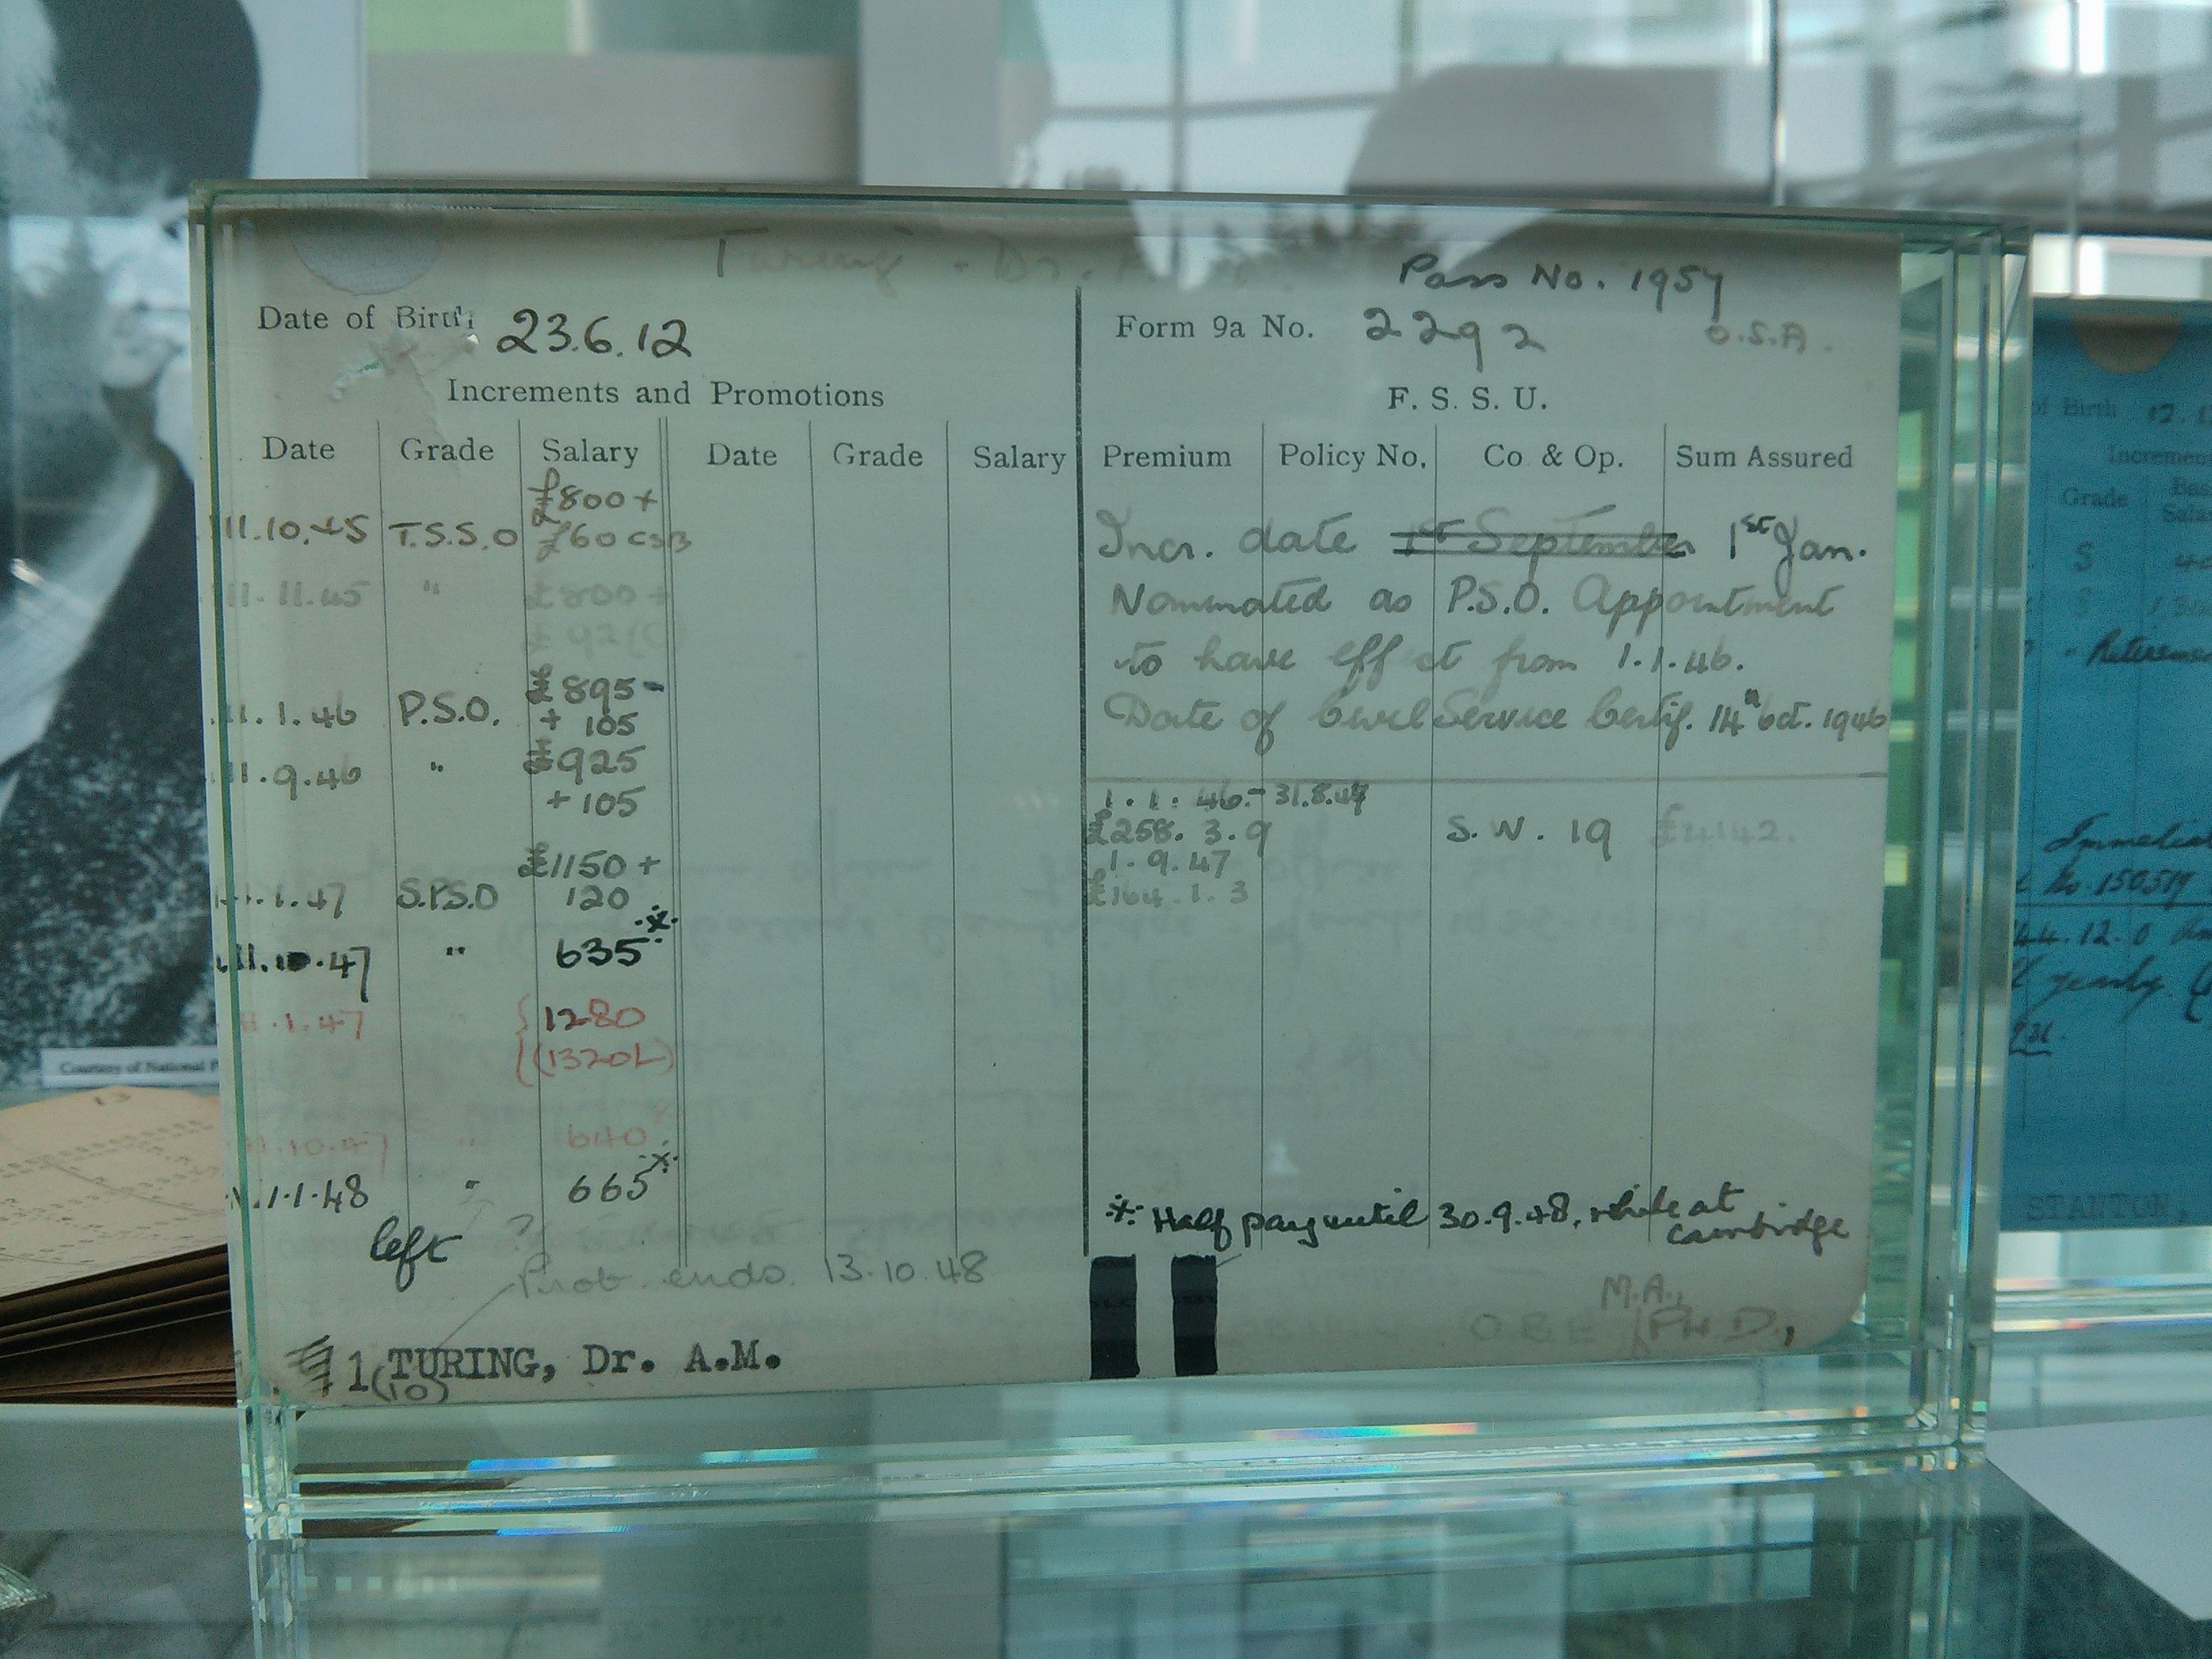 Turing - Dr.
Pass No. 1957
Date of Birth 23.6.12
Form 9a No. 2292
O.S.A.
Increments and Promotions
F. S. S. U.
Date Grade Salary Date Grade Salary
Premium Policy No. Co. & Op. Sum Assured
£800 +
11.10.45 T.S.S.O £60 CSB
11.11.45 " £800 +
£92
£895-
1.1.46 P.S.O. + 105
1.9.46 " £925
+ 105
£1150 +
1.1.47 S.P.S.O 120
.47 " 635 ※
1.47 " { 1280
{(1320L)
10.47 " 640
1.1.48 " 665 ※
left ?
Prob. ends. 13.10.48
1 TURING, Dr. A.M.
(10)
Incr. date 1st September 1st Jan.
Nominated as P.S.O. Appointment
to have effect from 1.1.46.
Date of Civil Service Certif. 14th Oct. 1946
1.1.46.- 31.8.47
£258. 3. 9 S.W. 19 £4142.
1.9.47
£164. 1. 3
※ Half pay until 30.9.48, while at
Cambridge
M.A.,
OBE PH.D.,
Courtesy of National
13
of Birth 12.
Increment
Grade
S
Retirement
Immediat
No 150519
44.12.0
yearly
STANTON,